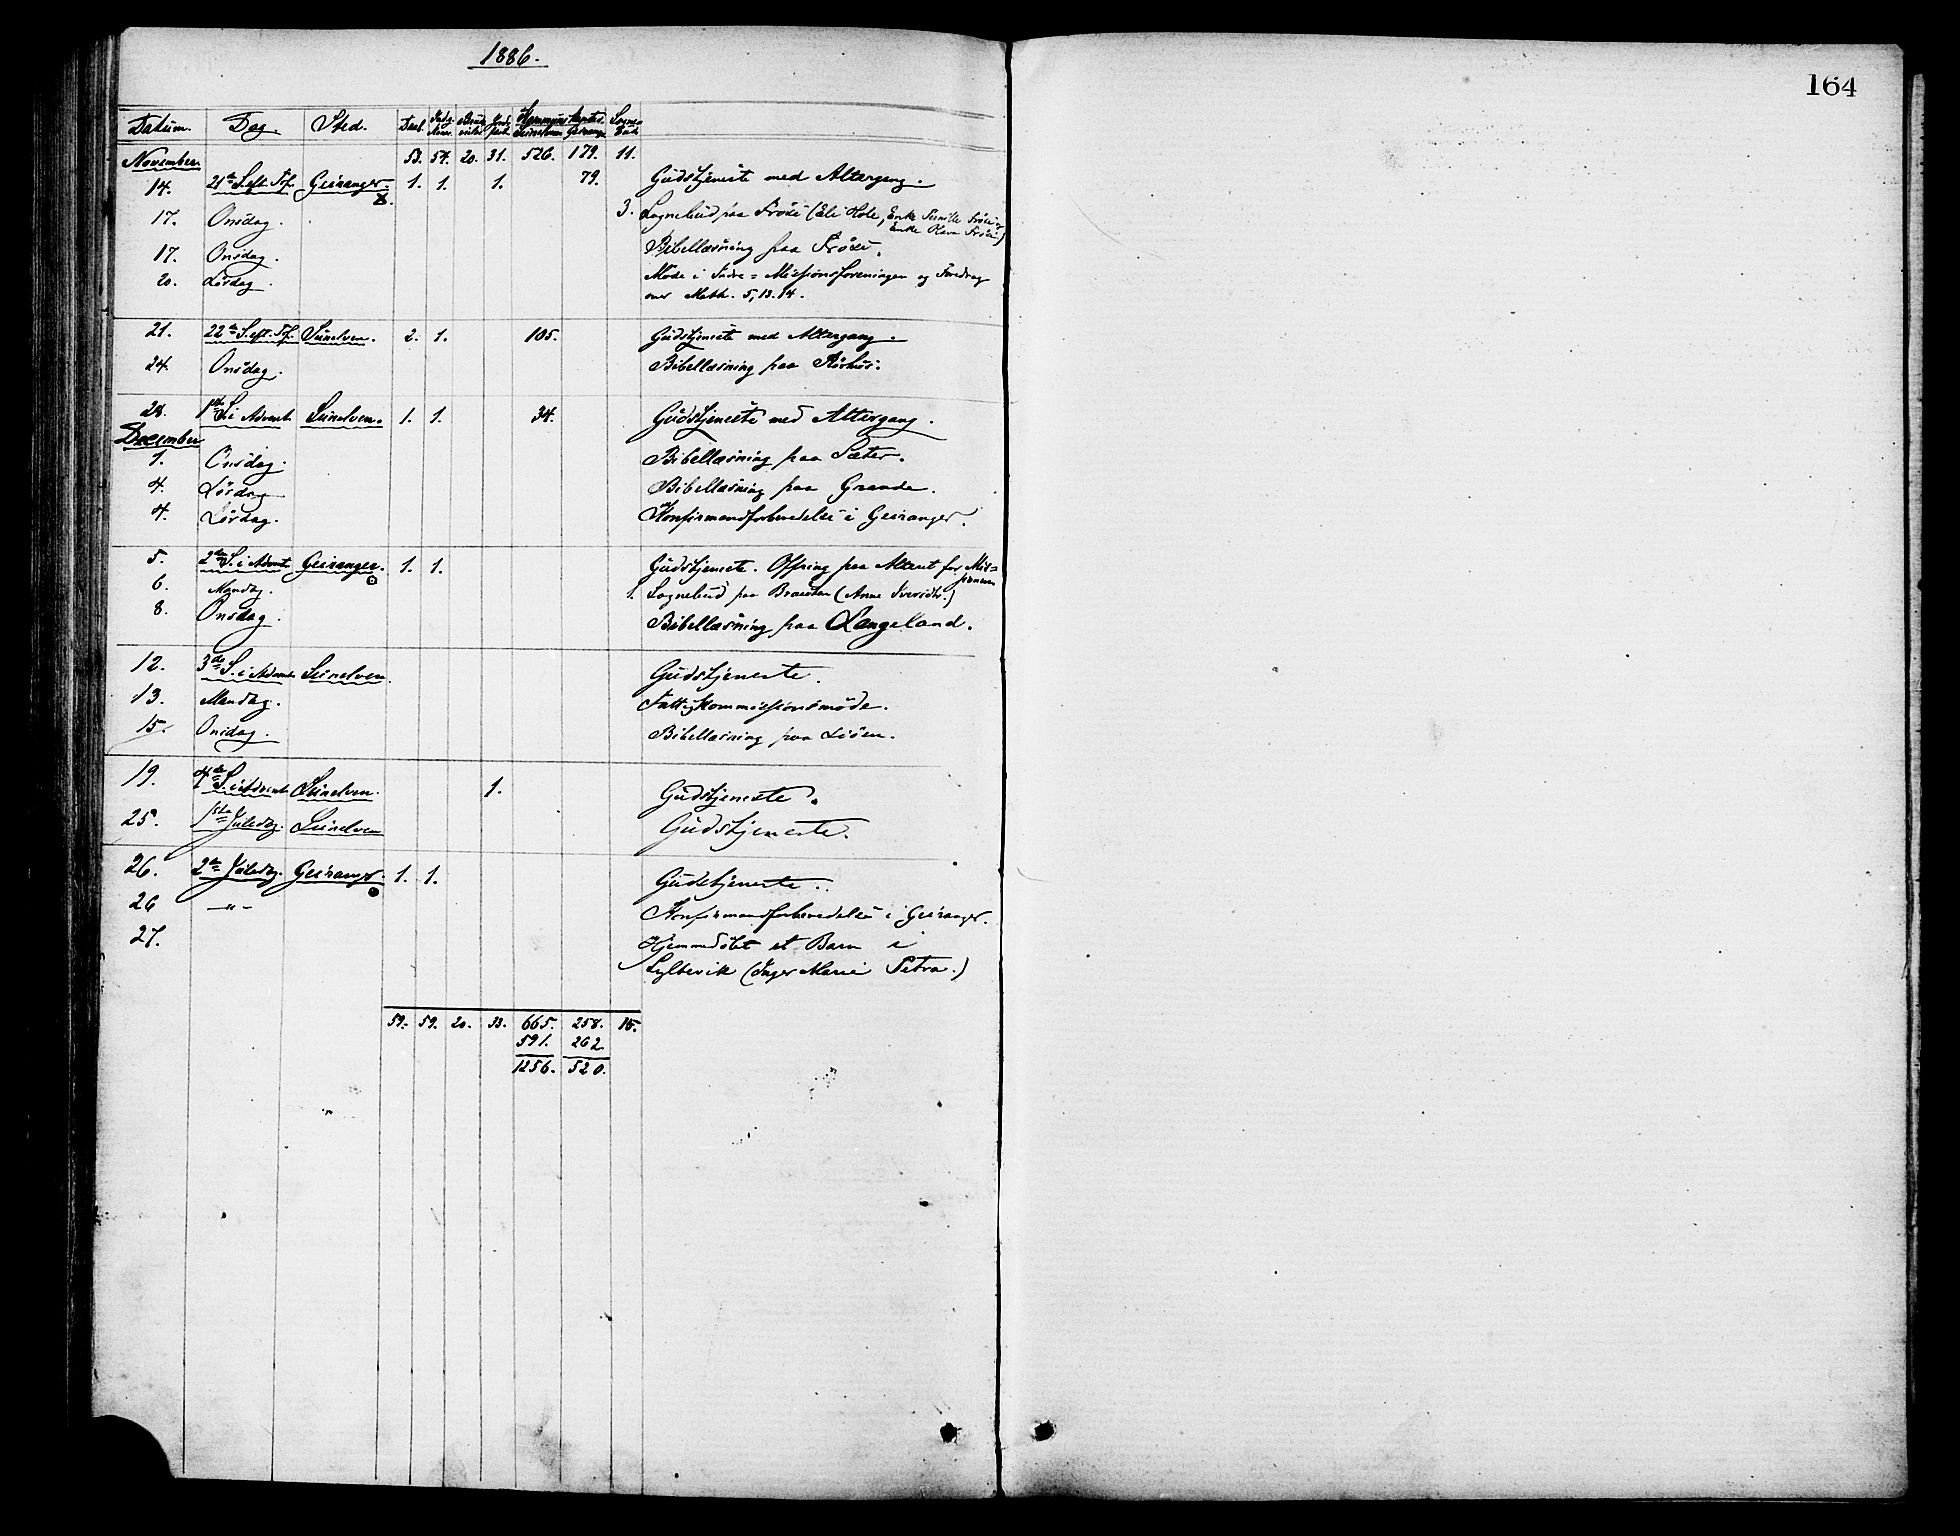 1886.
164
Datum. Dag. Sted. Daab Indg. Kone. Brude vielse Jord. fæst. Kommunikanter. Sunelven Geiranger Sogne Bud
November 53. 57. 20. 31. 526. 179. 11.
14. 21de S. eft. Tref. Geiranger. 1. 1. 1. 79. Gudstjeneste med Altergang.
17. Onsdag. 3. Sognebud paa Frøei (Eli Hole, Enke Pernille Frøei og
Enke Frøei)
17. Onsdag. Bibellæsning paa Frøei.
20. Lørdag. Møde i Indre-Missionsforeningen og Foredrag
over Math. 5, 13. 14.
21. 22de S. eft. Tref. Sunelven. 2. 1. 105. Gudstjeneste med Altergang.
24. Onsdag. Bibellæsning paa
28. 1ste S. i Advent Sunelven. 1. 1. 34. Gudstjeneste med Altergang.
December
1. Onsdag. Bibellæsning paa Sæter.
4. Lørdag Bibellæsning paa Grande.
4. Lørdag. Konfirmandforberedelse i Geiranger.
5. 2den S. i Advent Geiranger. 1. 1. Gudstjeneste. Offring paa Alteret for Mis=
sionen
6. Mandag. 1. Sognebud paa (Anne Iversdtr.)
8. Onsdag. Bibellæsning paa Langeland.
12. 3die S. i Advent Sunelven. Gudstjeneste.
13. Mandag. Fattigkommissionsmøde.
15. Onsdag. Bibellæsning paa Liøen.
19. 4de S. i Advent Sunelven. 1. Gudstjeneste.
25. 1ste Juledag. Sunelven Gudstjeneste.
26. 2den Juledag. Geiranger. 1. 1. Gudstjeneste.
26 —"— Konfirmandforberedelse i Geiranger.
27. Hjemmedøbt et Barn i
Syltevik (Inger Marie Petra.)
59. 59. 20. 33. 665. 258. 15.
591. 262
1256. 520.